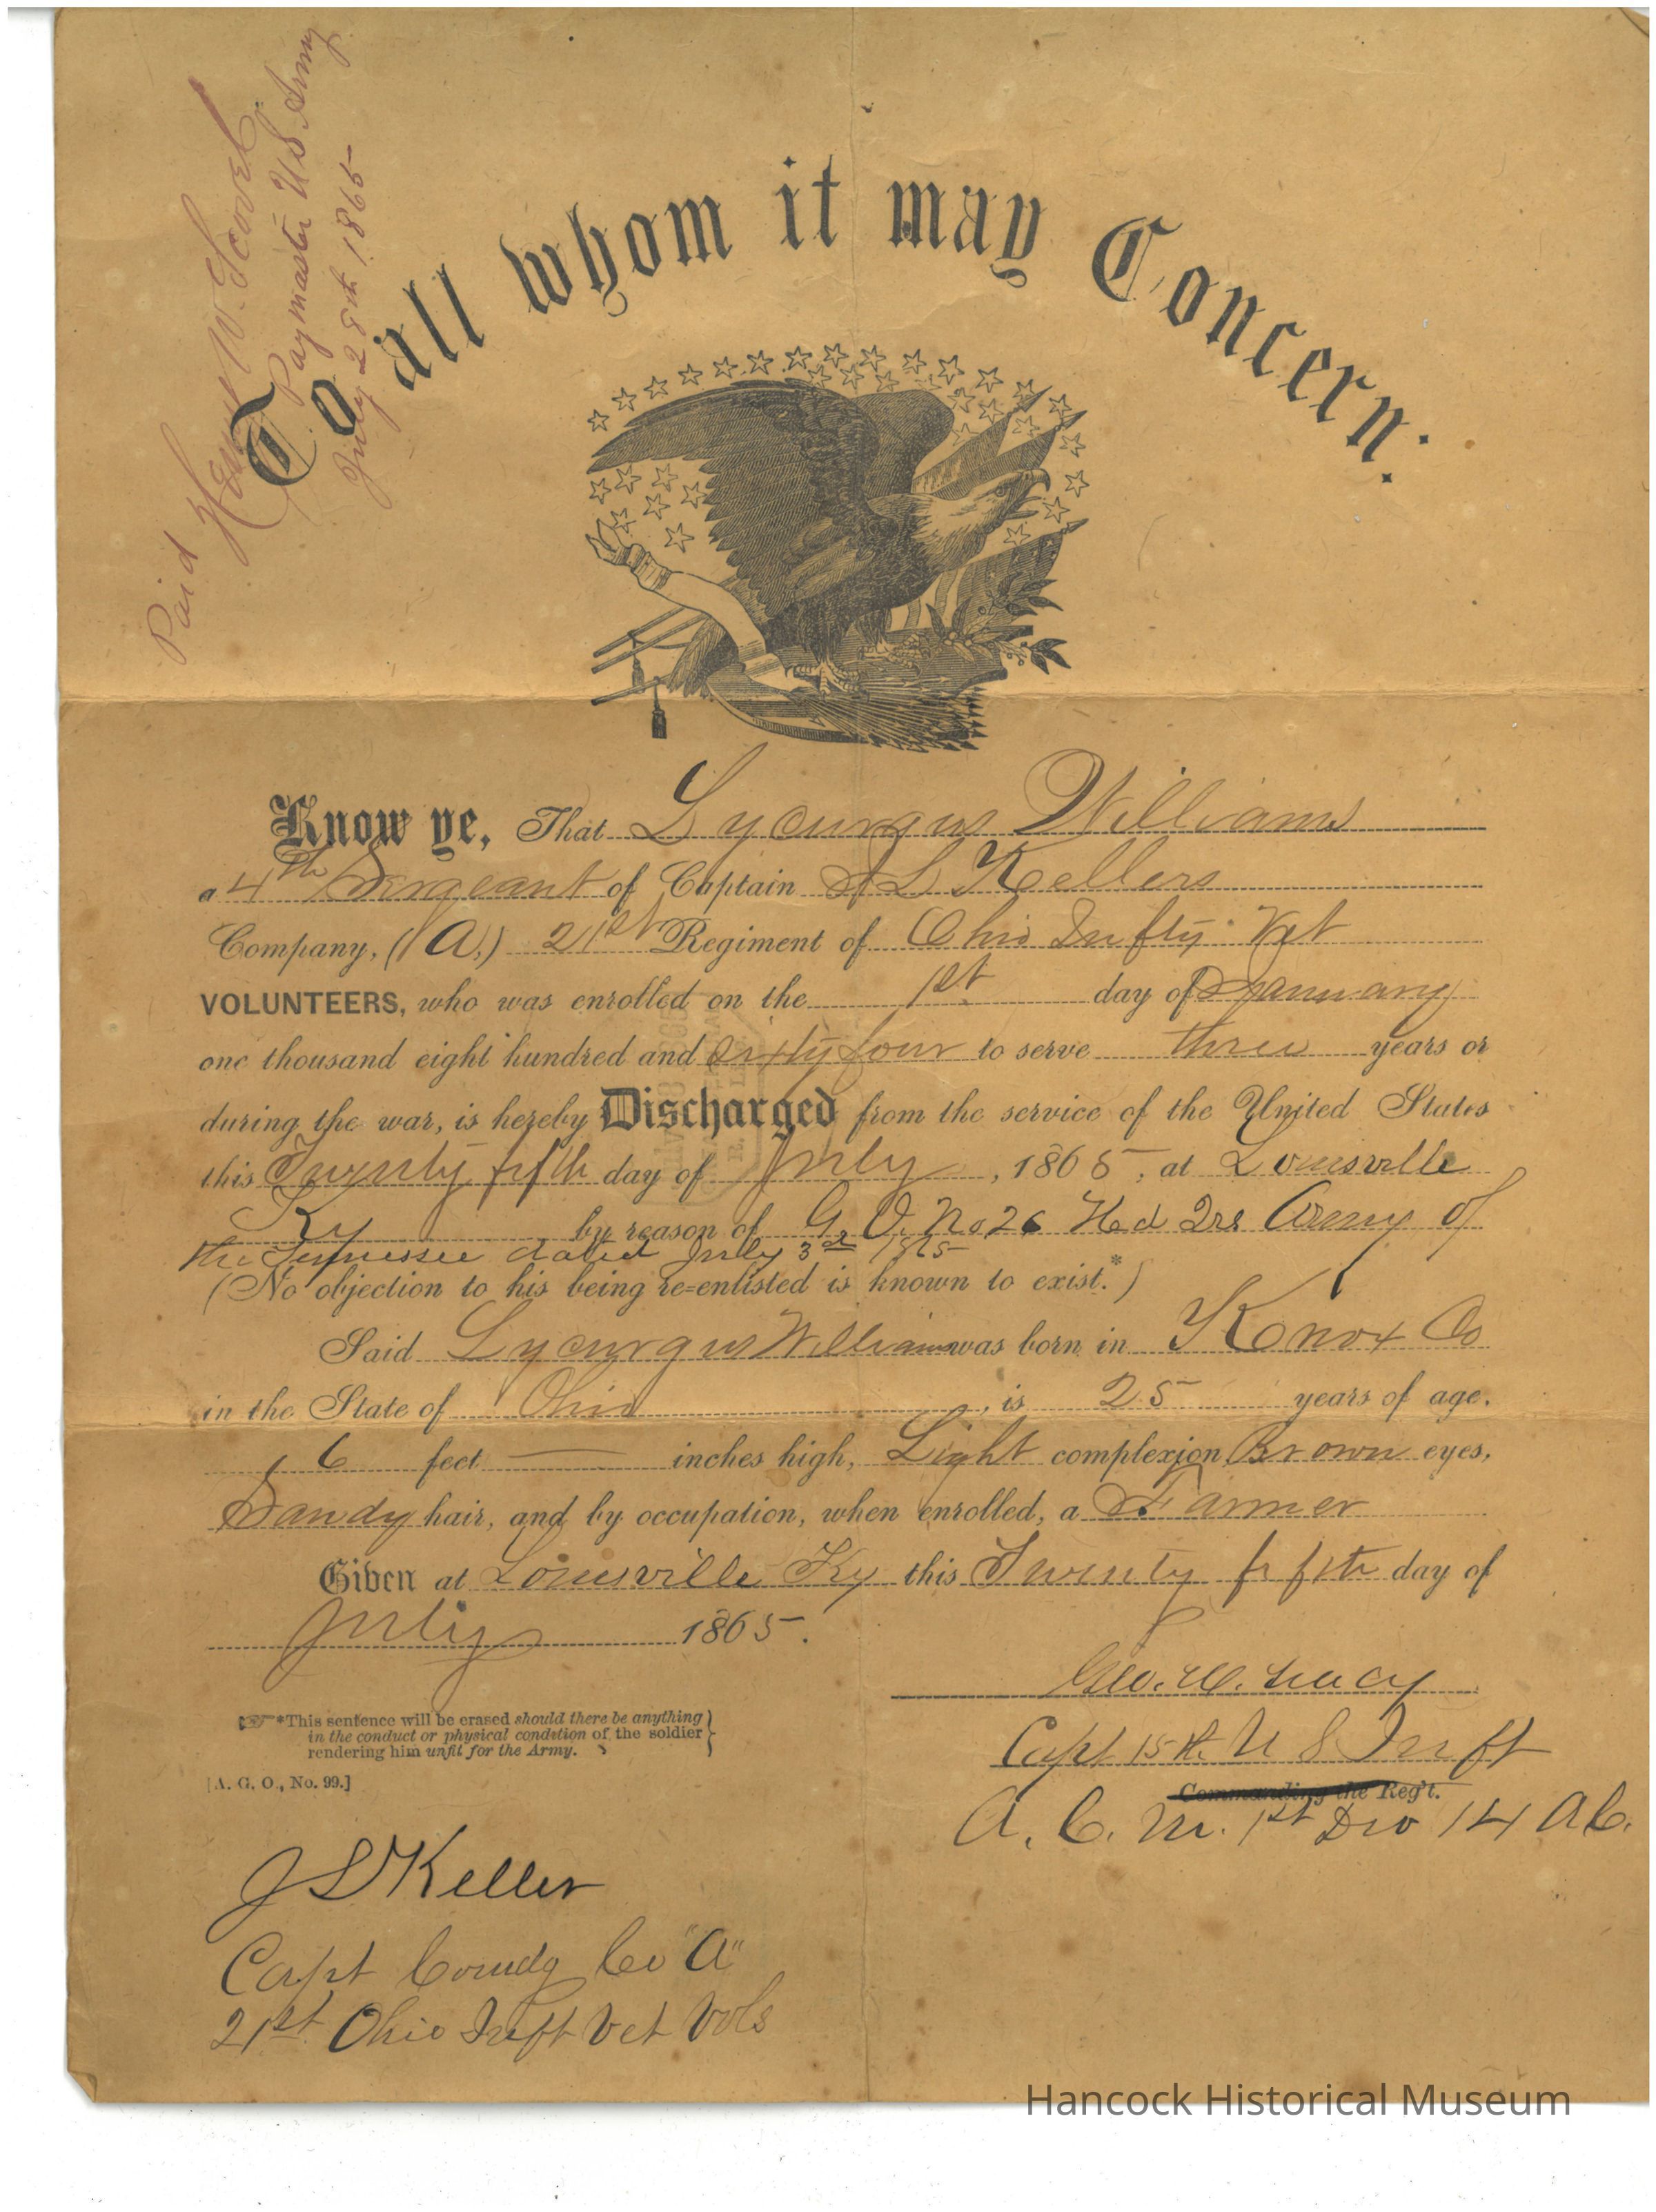 Paid
W. Scovel
Paymaster US Army
July 28th 1865
To all whom it may Concern:
Know ye, That Lycurgus Williams
a 4th Sergeant of Captain L Kellers
Company, (A,) 21st Regiment of Ohio Infty Vet
VOLUNTEERS, who was enrolled on the 1st day of January
one thousand eight hundred and sixty four to serve three years or
during the war, is hereby Discharged from the service of the United States
this Twenty fifth day of July, 1865, at Louisville
Ky by reason of G. O. No 26 Hd Qrs Army of
the Tennessee dated July 3d 1865
(No objection to his being re=enlisted is known to exist.*)
Said Lycurgus Williams was born in Knox Co
in the State of Ohio, is 25 years of age,
6 feet — inches high, Light complexion, Brown eyes,
Sandy hair, and by occupation, when enrolled, a Farmer
Given at Louisville Ky this Twenty fifth day of
July 1865.
Geo. W.
Capt 15th U S Inft
Commanding the Reg't.
A. C. M. 1st Div 14 A C.
*This sentence will be erased should there be anything
in the conduct or physical condition of the soldier
rendering him unfit for the Army.
[A. G. O., No. 99.]
J S Keller
Capt Comdg Co "A"
21st Ohio Inft Vet Vols
Hancock Historical Museum